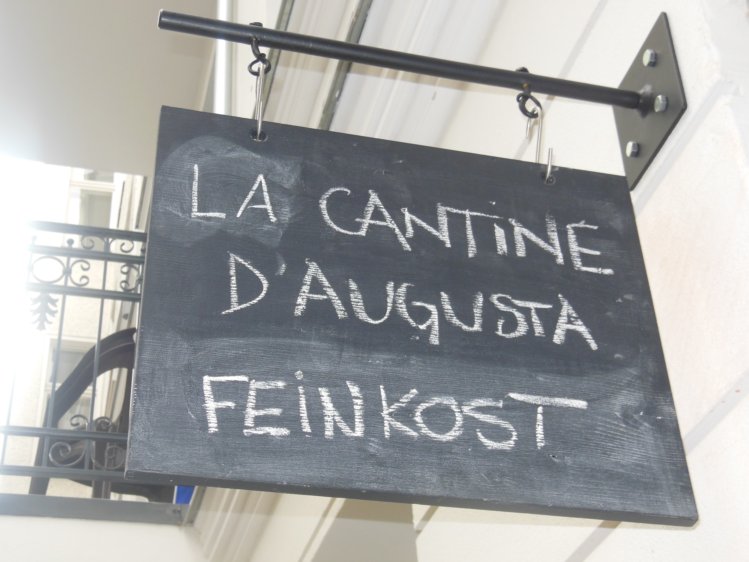 LA CANTINE
D'AUGUSTA
FEINKOST